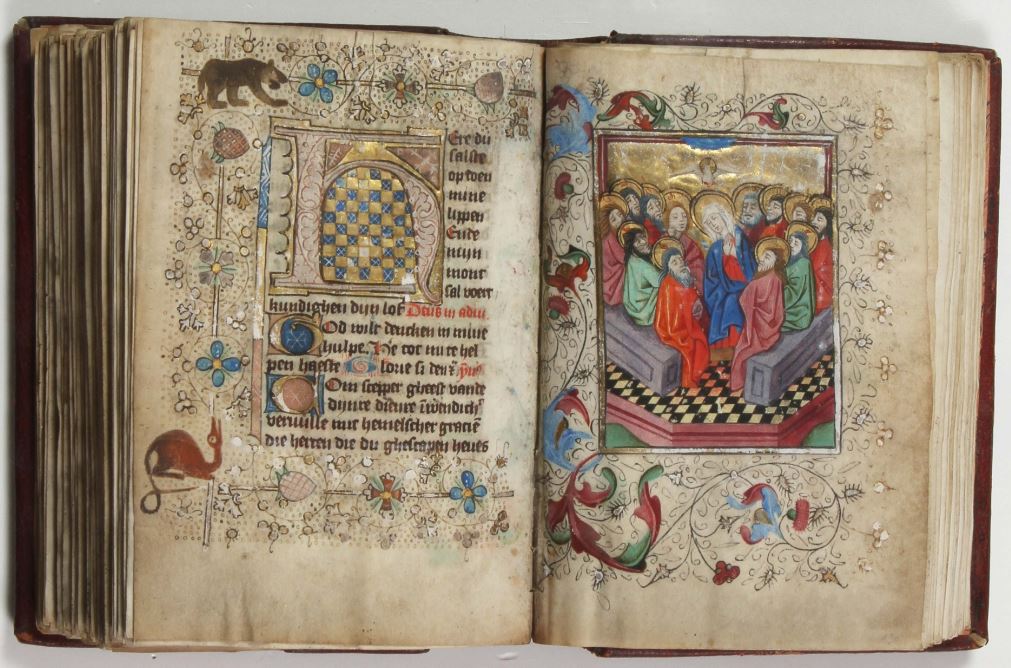 HEre du
salste
opdoen
mine
lippen
Ende
mijn
mont
sal voert
kundighen dijn lof Deus in adiu
God wilt dencken in mine
hulpe. He tot mi te hel
pen haeste Glorie si den
Com scepper gheest vande
dijnre dienre
vervulle mit hemelscher graciē
die herten die du ghescapen heves